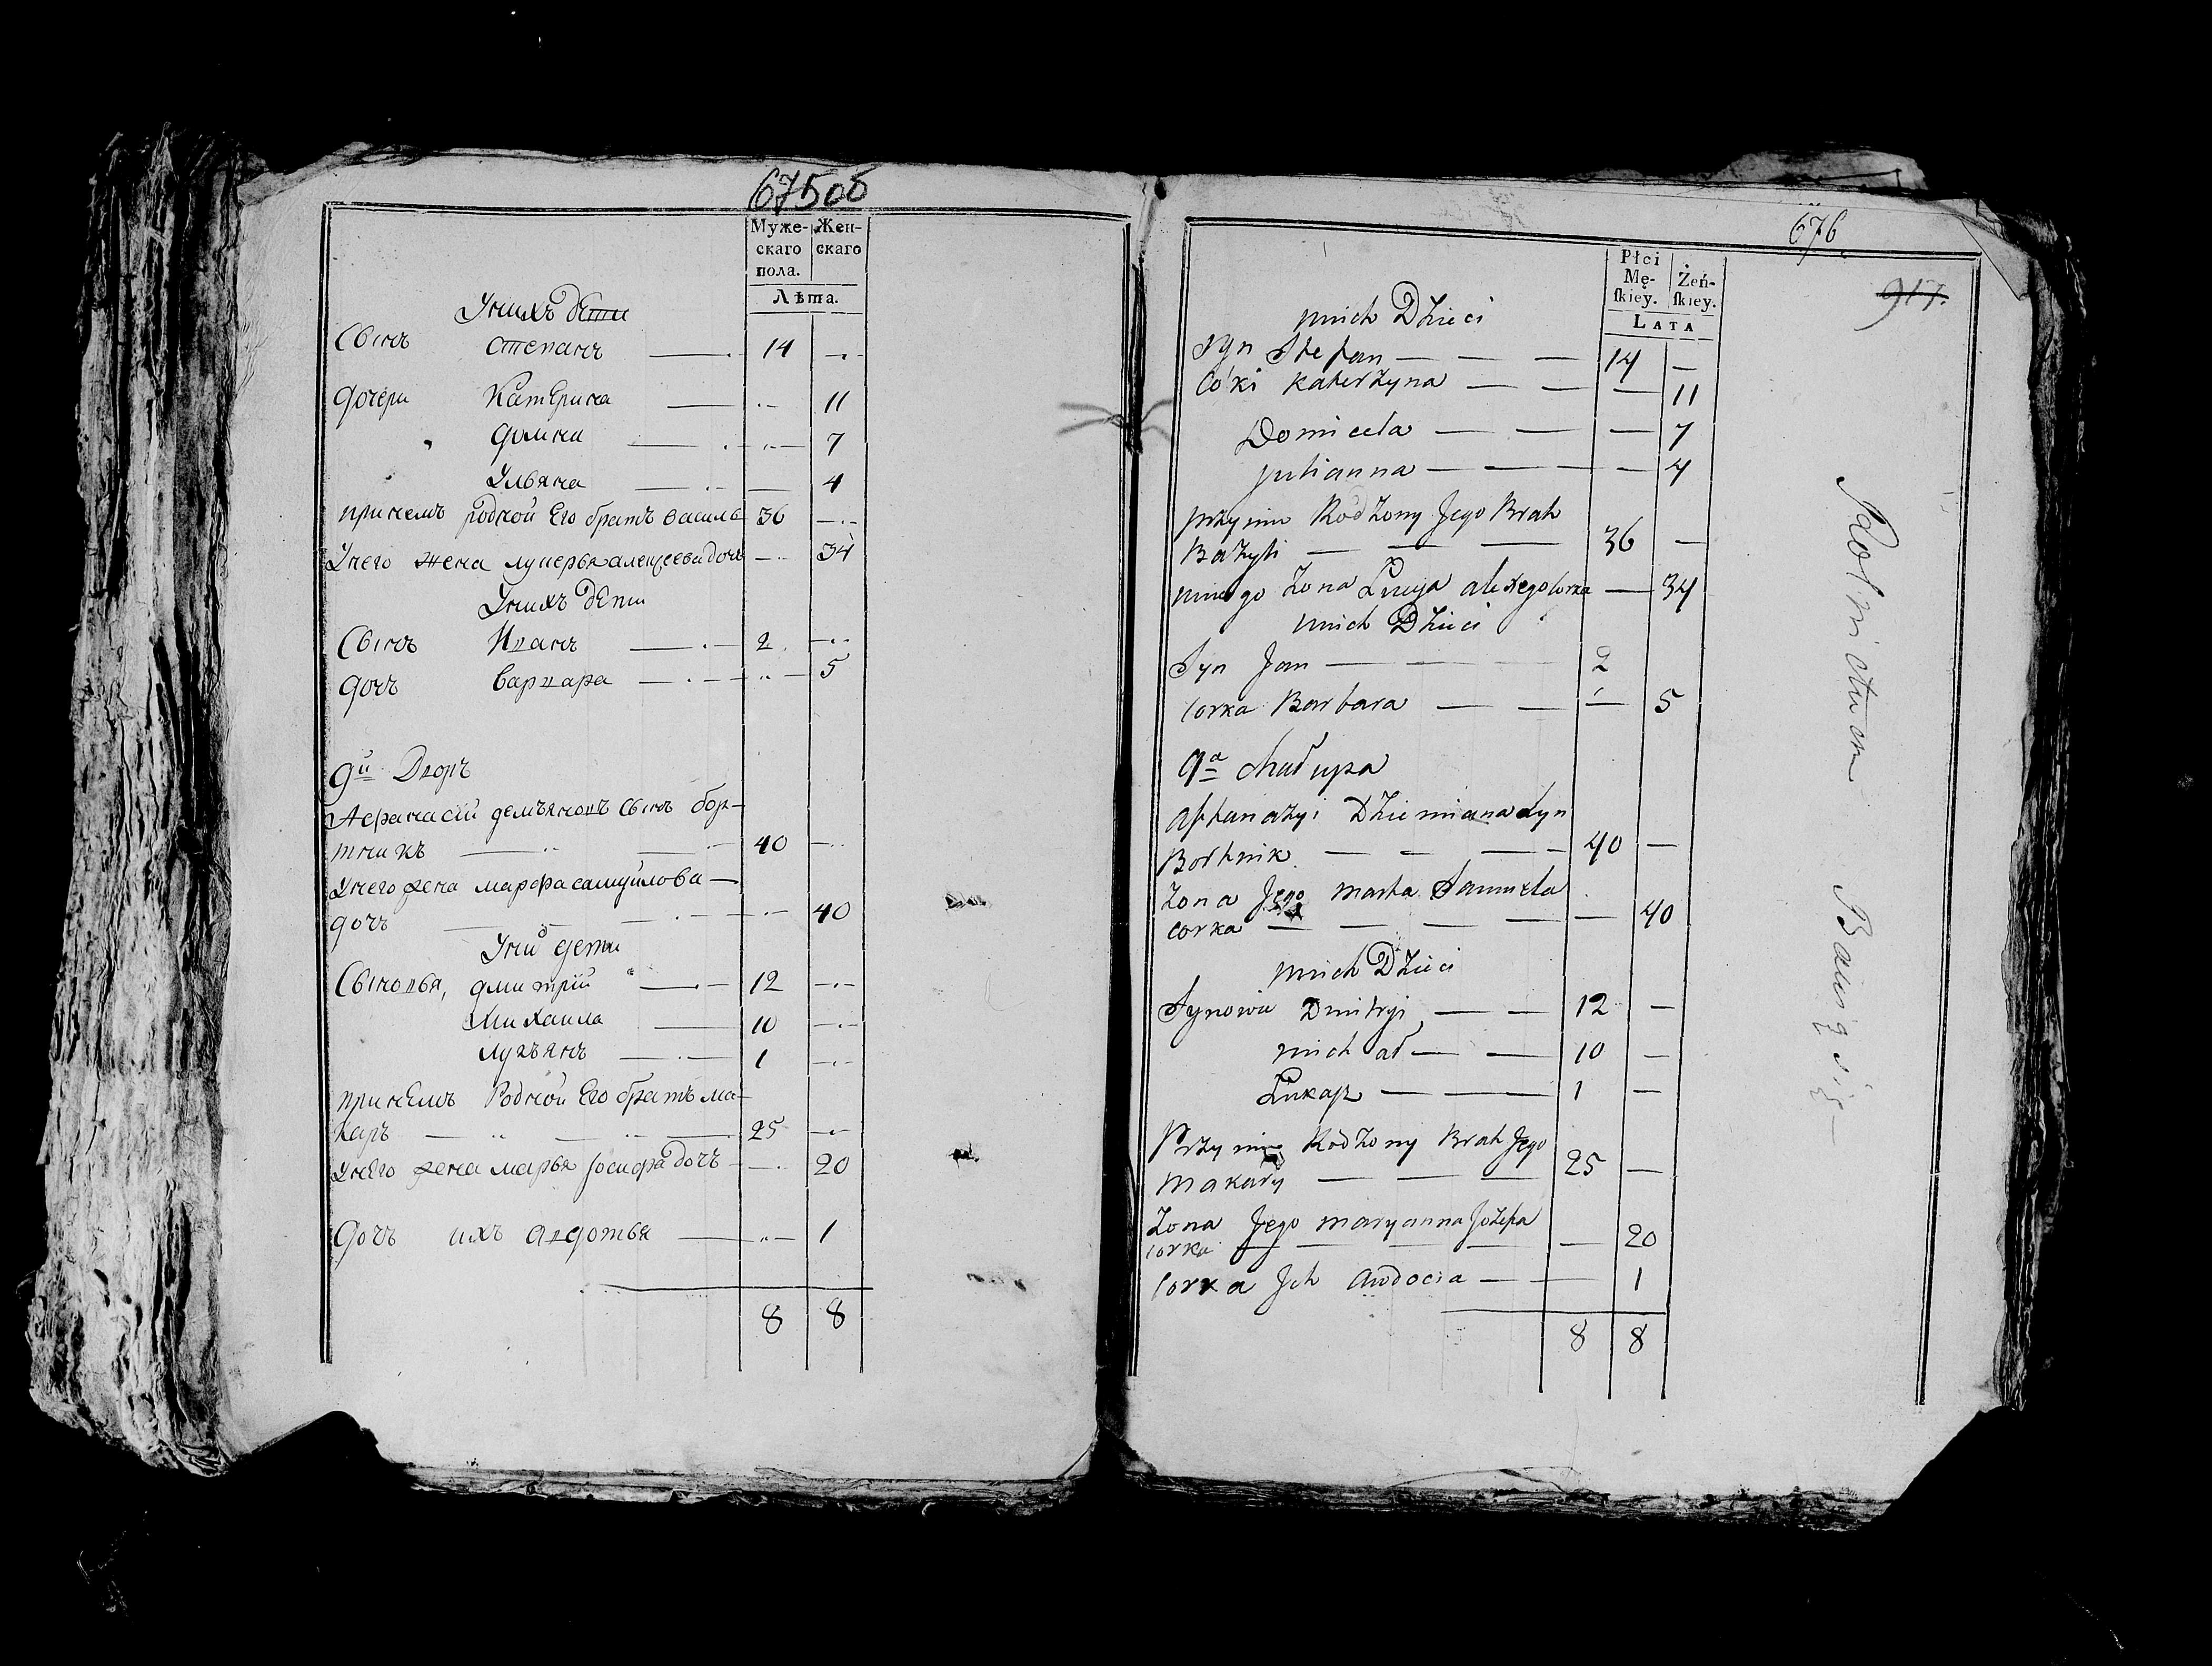 675об
Муже- Жен-
скаго скаго
пола.
Лѣта.
Унихъ дети
Сынъ Степанъ 14
дочери Катерина 11
домна 7
Ульяна 4
принемъ родной Его братъ василь 36
Унего жена лукерья алексеева дочь 34
Унихъ дети
Сынъ Иванъ 2
дочь варвара 5
9й Дворъ
Афанасий демьяновъ Сынъ бор-
тникъ 40
Унего жена марфа самуйлова
дочь 40
Уних дети
Сыновья, дмитрий 12
Михаила 10
лукьянъ 1
принемъ Родной Его братъ ма-
каръ 25
унего жена марья Іосифа дочь 20
дочь ихъ авдотья 1
8 8
676
917.
Płci
Mę- Żeń-
ſkiey. ſkiey.
LATA
unich Dzieci
Syn Stefan 14
Córki Katerzyna 11
Domicela 7
Julianna 4
przynim Rodzony Jego Brat
Bazyli 36
uniego Zona Lucyja alexego Corka 34
unich Dzieci
Syn Jan 2
Corka Barbara 5
9a Chałupa
Affanazyi Dziemiana Syn
Bortnik 40
Zona Jego Marta Samuela
corka 40
unich Dzieci
Synowie Dmitryi 12
Michał 10
Łukasz 1
Przynim Rodzony Brat Jego
Makary 25
Zona Jego Maryanna Jozefa
corka 20
Corka Jch Awdocia 1
8 8